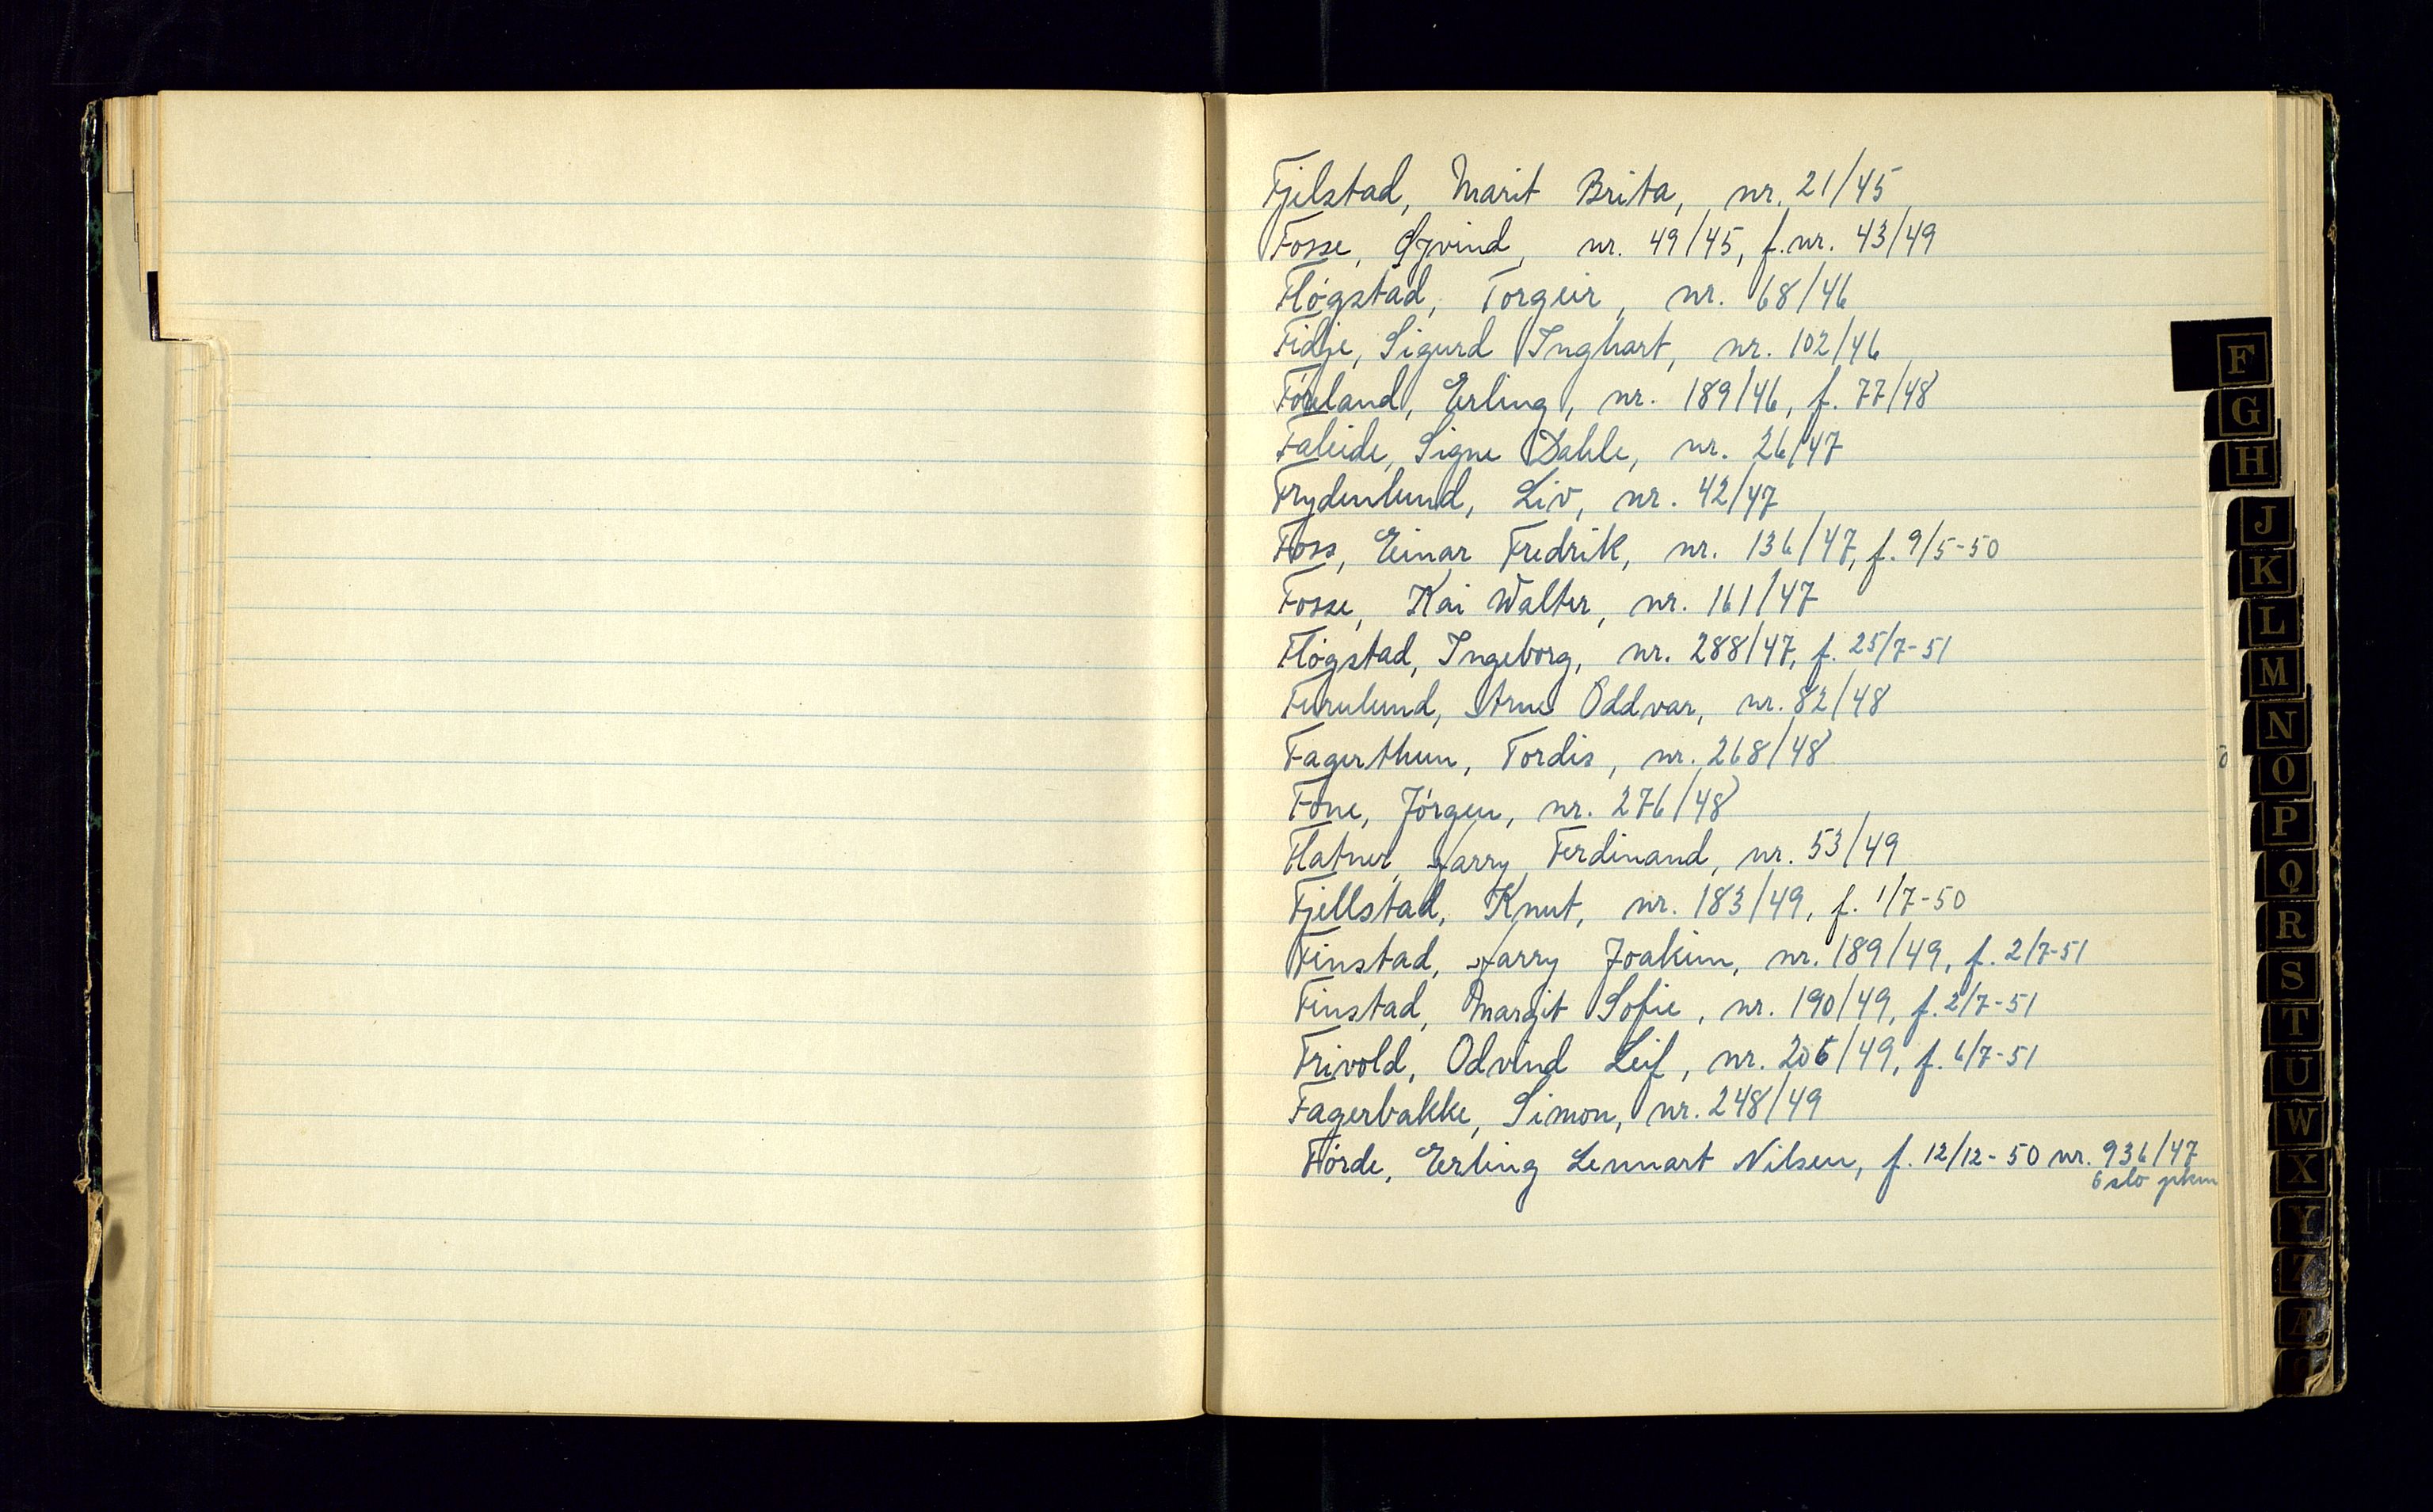 Fjelstad, Marit Brita, nr. 21/45
Fosse, Øjvind, nr. 49/45, f. nr. 43/49
Flógstad, Torgeir, nr. 68/46
Fidje, Sigurd Inghart, nr. 102/46
Erling, nr. 189/46, f. 77/48
Faleide, Signe Dahle, nr. 26/47
Frydenlund, Liv, nr. 42/47
Foss, Einar Fredrik, nr. 136/47, f. 9/5-50
Fosse, Kai Walter, nr. 161/47
Flógstad, Ingeborg, nr. 288/47, f. 25/7-51
Furulund, Arne Oddvar, nr. 82/48
Fagerthun, Tordis, nr. 268/48
Fone, Jórgen, nr. 276/48
Flatner, Harry Ferdinand, nr. 53/49
Fjellstad, Knut, nr. 183/49, f. 1/7-50
Finstad, Harry Joakim, nr. 189/49, f. 2/7-51
Finstad, Margit Sofie, nr. 190/49, f. 2/7-51
Frivold, Odvind Leif, nr. 206/49, f. 6/7-51
Fagerbakke, Simon, nr. 248/49
Fórde, Erling Lennart Nilsen, f. 12/12-50 nr. 936/47
Oslo pkm
F
G
H
J
K
L
M
N
O
P
Q
R
S
T
U
W
X
Y
Z
Æ